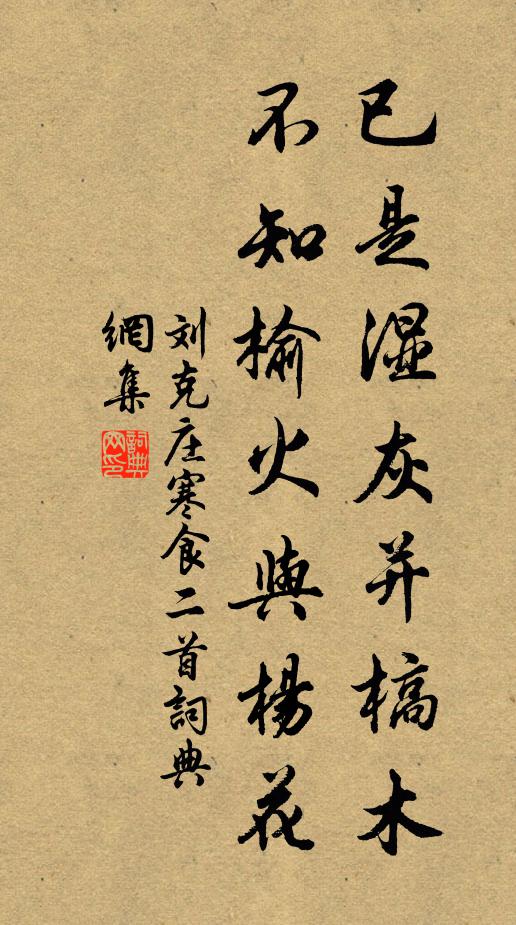 已是湿灰并槁木
不知榆火與楊花
刘克庄寒食二首詞典
網集
詞典
网印